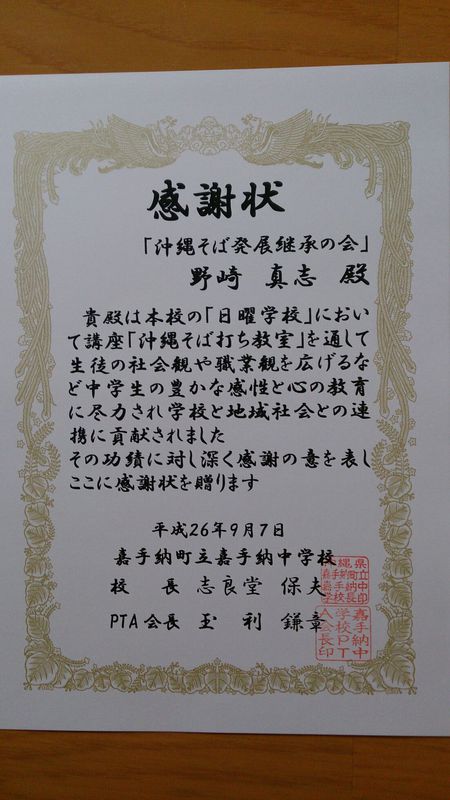 感謝状
「沖縄そば発展継承の会」
野崎 真志 殿
貴殿は本校の「日曜学校」におい
て講座「沖縄そば打ち教室」を通して
生徒の社会観や職業観を広げるな
ど中学生の豊かな感性と心の教育
に尽力され学校と地域社会との連
携に貢献されました
その功績に対し深く感謝の意を表し
ここに感謝状を贈ります
平成26年9月7日
嘉手納町立嘉手納中学校
校 長 志良堂 保夫
PTA会長 玉 利 鎌章
嘉手納中
学校PT
A会長印